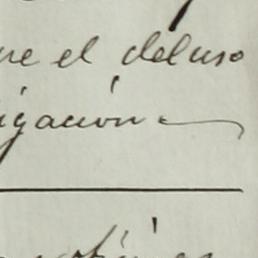 ue el del uso
igación.